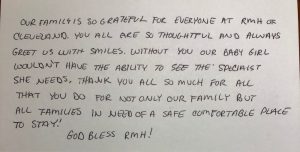 OUR FAMILY IS SO GRATEFUL FOR EVERYONE AT RMH OF
CLEVELAND. YOU ALL ARE SO THOUGHTFUL AND ALWAYS
GREET US WITH SMILES. WITHOUT YOU OUR BABY GIRL
WOULDN'T HAVE THE ABILITY TO SEE THE SPECIALIST
SHE NEEDS. THANK YOU ALL SO MUCH FOR ALL
THAT YOU DO FOR NOT ONLY OUR FAMILY BUT
ALL FAMILIES IN NEED OF A SAFE COMFORTABLE PLACE
TO STAY!
GOD BLESS RMH!